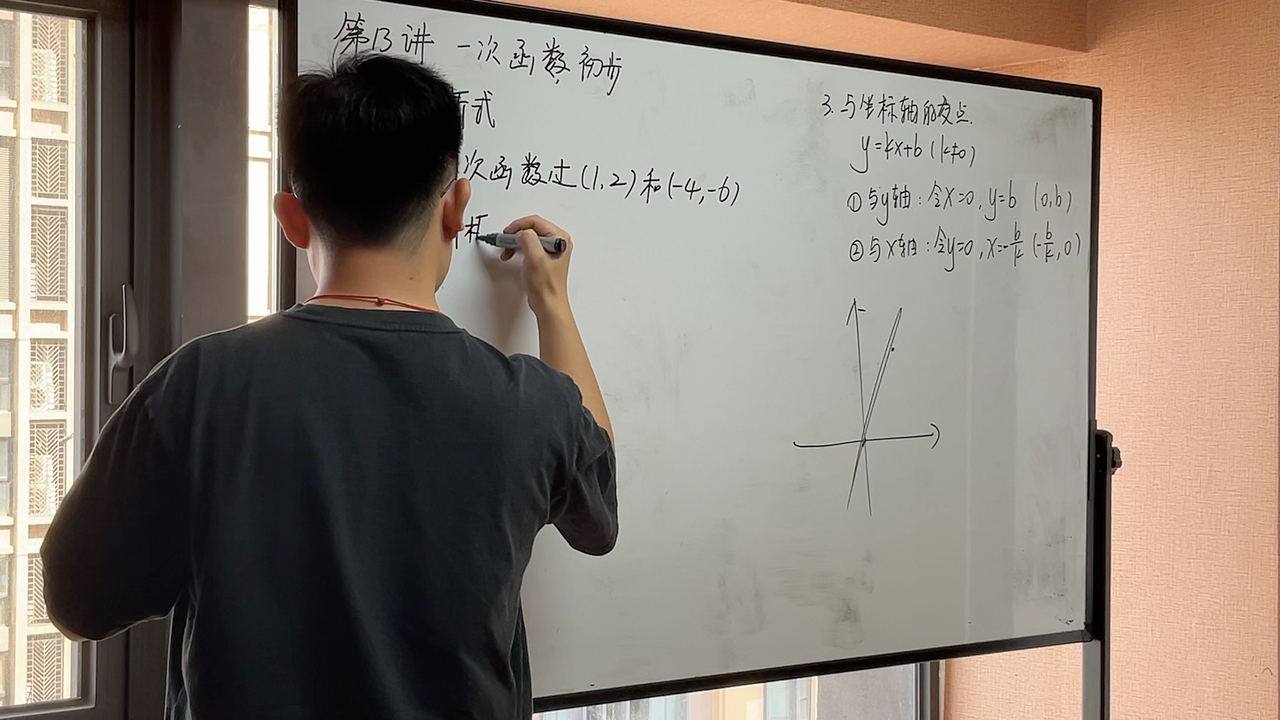 第13讲 一次函数初步
析式
次函数过(1,2)和(-4,-6)
析
3.与坐标轴的交点.
y=kx+b (k≠0)
①与y轴:令x=0,y=b (0,b)
②与x轴:令y=0,x=-b/k (-b/k,0)